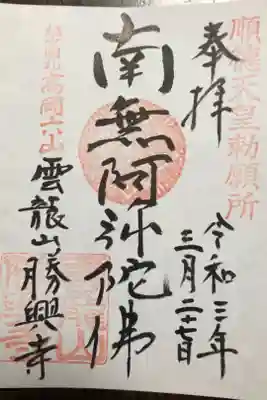 順徳天皇勅願所
奉拝
令和三年
三月二十七日
南無阿弥陀佛
雲龍山勝興寺